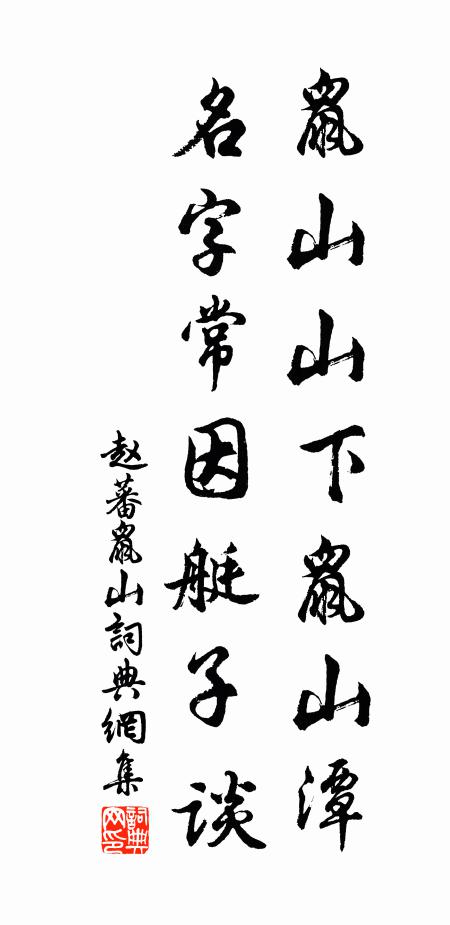 巤山山下巤山潭
名字常因艇子谈
赵蕃巤山詞典網集
詞典网印